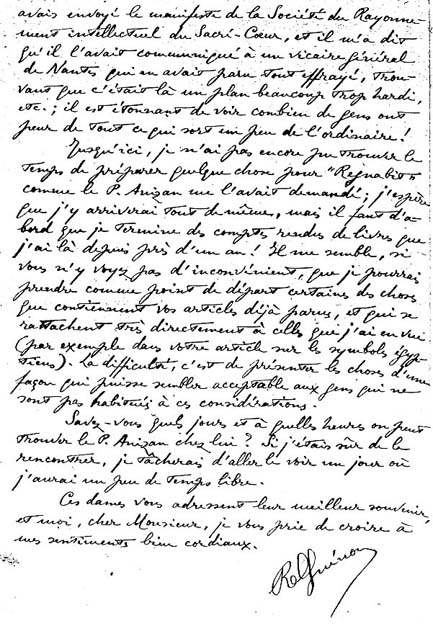 avais envoyé le manifeste de la Société du Rayonne-
ment intellectuel du Sacré-Cœur, et il m'a dit
qu'il l'avait communiqué à un vicaire général
de Nantes qui en avait paru tout effrayé, trou-
vant que c'était là un plan beaucoup trop hardi,
etc.; il est étonnant de voir combien de gens ont
peur de tout ce qui sort un peu de l'ordinaire!
Jusqu'ici, je n'ai pas encore pu trouver le
temps de préparer quelque chose pour "Regnabit"
comme le P. Anizan me l'avait demandé; j'espère
que j'y arriverai tout de même, mais il faut d'a-
bord que je termine des comptes rendus de livres que
j'ai là depuis près d'un an! Il me semble, si
vous n'y voyez pas d'inconvénient, que je pourrais
prendre comme point de départ certaines des choses
que contiennent vos articles déjà parus, et qui se
rattachent très directement à celles que j'ai en vue
(par exemple dans votre article sur les symboles égyp-
tiens). La difficulté, c'est de présenter les choses d'une
façon qui puisse sembler acceptable aux gens qui ne
sont pas habitués à ces considérations.
Savez-vous quels jours et à quelles heures on peut
trouver le P. Anizan chez lui? Si j'étais sûr de le
rencontrer, je tâcherais d'aller le voir un jour où
j'aurai un peu de temps libre.
Ces dames vous adressent leur meilleur souvenir,
et moi, cher Monsieur, je vous prie de croire à
mes sentiments bien cordiaux.
René Guénon